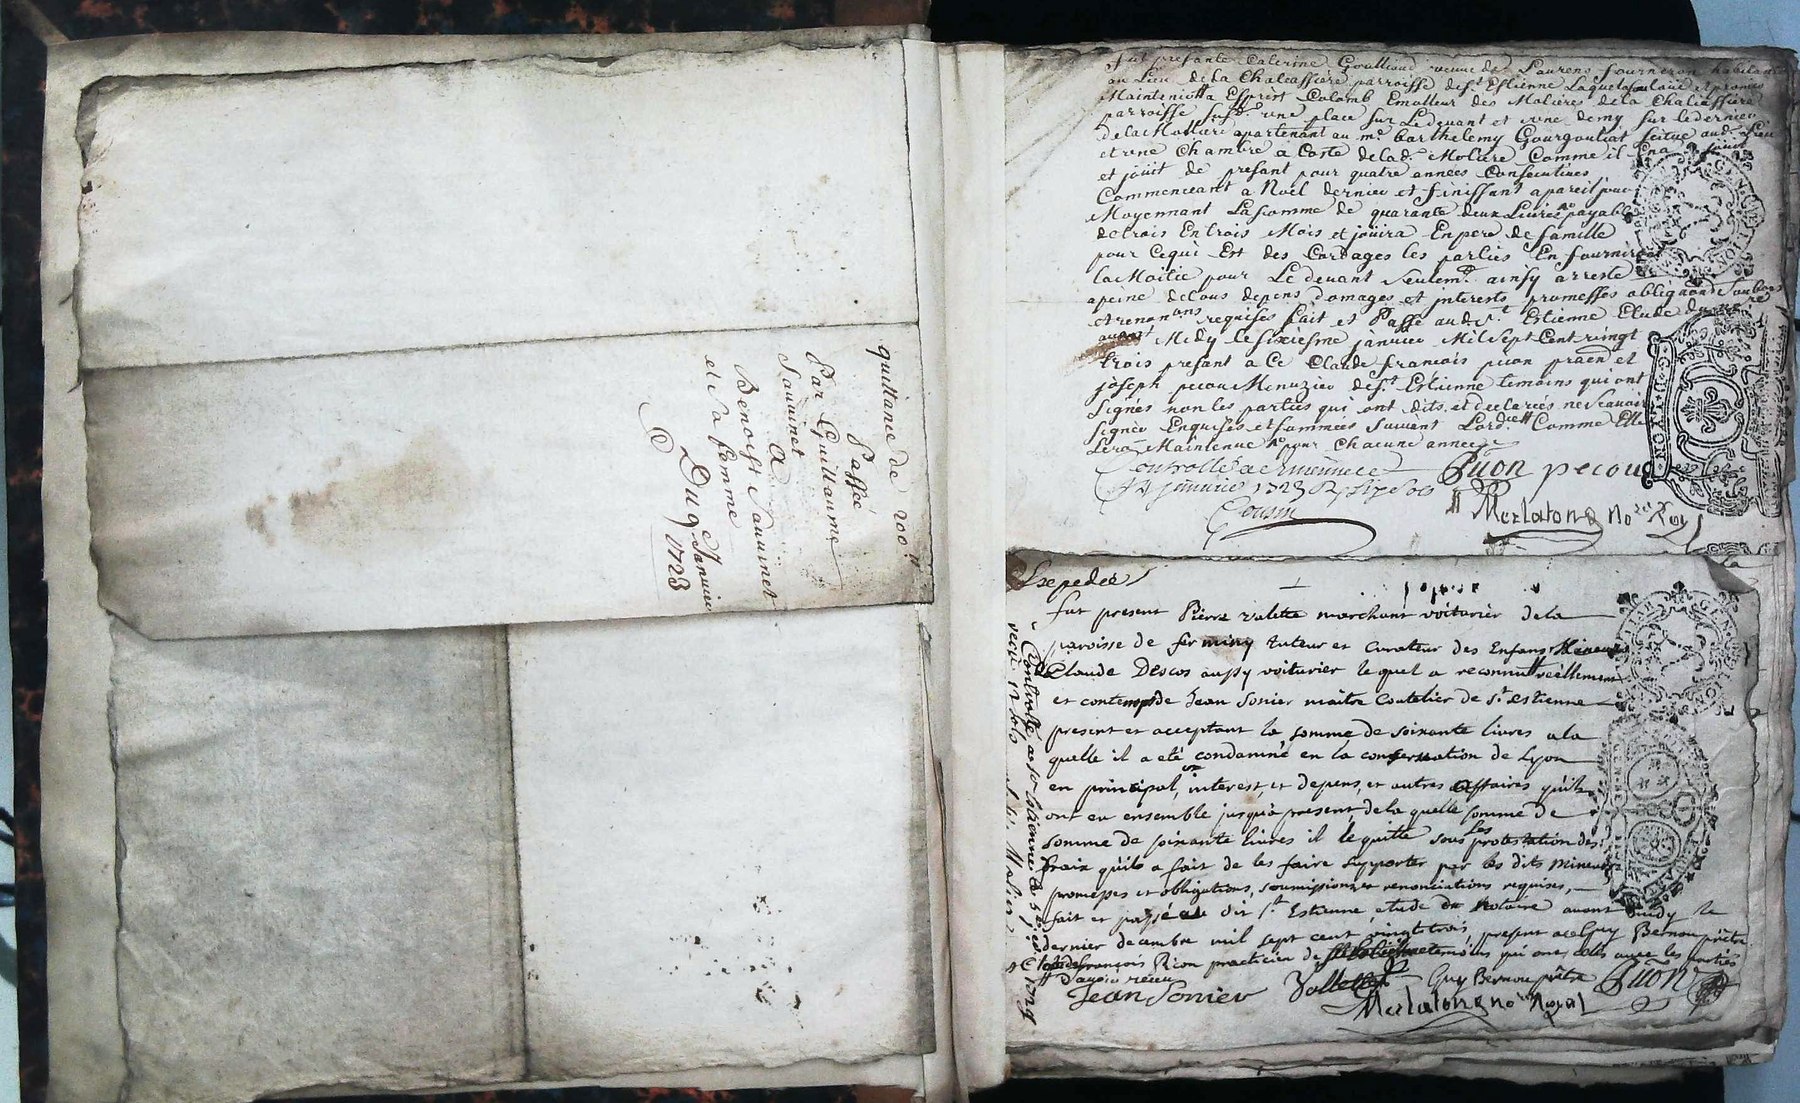 quittance de 200 ll
Passée
Par Guillaume
Sauvinet
A
Benoist Sauvinet
et sa femme
Du 9 Janvier
1723
fut presante Caterine Goulliond veuve de Laurens fourneron habitante
au Lieu de la Chaleassiere parroisse de St Estienne Laquelle loue et promes
Maintenir a Esprit Colomb Emolleur des Molieres de la Chaleassiere
parroisse susd. une place sur Ledevant et une demy sur lederrier
de la Molliere apartenant au mr Barthelemy Gourgouliat scitue aud. Lieu
et une Chambre a Coste de lad. Moliere Comme il En a
et jouit de presant pour quatre années Consecutives
Commenceant a Noel dernier et finissant a pareil jour
Moyennant La somme de quarante deux Livres payable
de trois En trois Mois et jouira En pere de famille
pour Cequi Est des Cordages les parties En fourniront
la Moitie pour Le devant seulemt. ainsy arreste
a peine de tous depens domages et interests promesses obligaons
et renonaons requises fait et Passe aud. St Estienne Etude du
avant Midy le sixiesme janvier Mil sept Cent vingt
trois presant a Ce Claude francois pion praen et
joseph pecou Menuzier de St. Estienne temoins qui ont
signés non les parties qui ont dits et declarées ne scavoir
signer Enquises et sommées suivent Lord. Comme Elle
sera Maintenue pour Chacune année
Controllé a St Estienne ce
janvier 1723 R. six sols
Cousin
Pion pecou
Mezlatong nore Roy
GEN LYON
GEN LYON
Expedée
fut present Pierre valette marchant voiturier de la
paroisse de firminy tuteur et curateur des Enfans Mineurs
de Claude Descos aussy voiturier lequel a reconnu reellement
et contempt de Jean Sonier maitre Coutelier de St. Estienne
present et acceptant la somme de soixante livres a la
quelle il a eté condamné en la conservation de Lyon
en principal, interest, et depens, et autres affaires quils
ont eu ensemble jusqu'a present, de la quelle somme de
somme de soixante livres il le quitte sous les protestation des
fraix quils a fait de les faire supporter par les dits mineurs
promesses et obligations, soumissions et renonciations requises,
fait et passé au dit St. Estienne etude du Notaire avant midy le
dernier decembre mil sept cent vingt trois, present a ce Guy Bernou prêtre
et Claude françois Pion practicien de temoins qui ont signés avec les parties
Jean Sonier Vallette Guy Bernou prêtre Pion
Mezlatong nore Royal
Controllé a St Estienne le 5
reçu 12 sols
GEN LYON